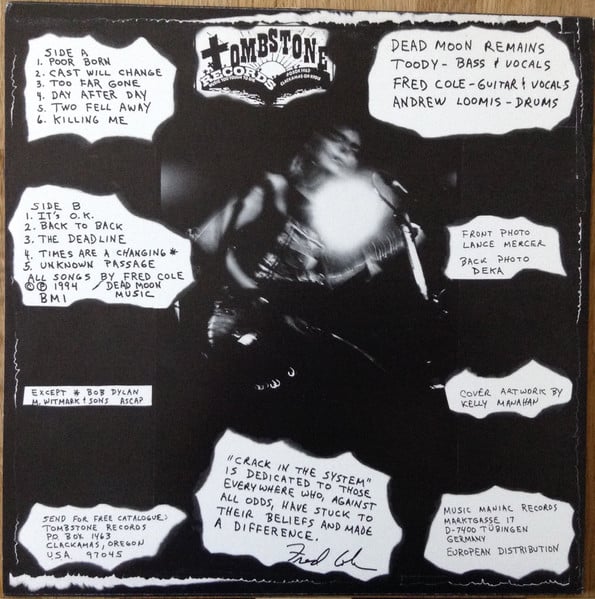 SIDE A
1. POOR BORN
2. CAST WILL CHANGE
3. TOO FAR GONE
4. DAY AFTER DAY
5. TWO FELL AWAY
6. KILLING ME
TOMBSTONE
RECORDS
DEAD MOON REMAINS
TOODY - BASS & VOCALS
FRED COLE - GUITAR & VOCALS
ANDREW LOOMIS - DRUMS
SIDE B
1. IT'S O.K.
2. BACK TO BACK
3. THE DEADLINE
4. TIMES ARE A CHANGING *
5. UNKNOWN PASSAGE
ALL SONGS BY FRED COLE
© ℗ 1994 / DEAD MOON
BMI MUSIC
FRONT PHOTO
LANCE MERCER
BACK PHOTO
DEKA
EXCEPT * BOB DYLAN
M. WITMARK & SONS ASCAP
COVER ARTWORK BY
KELLY MANAHAN
"CRACK IN THE SYSTEM"
IS DEDICATED TO THOSE
EVERYWHERE WHO, AGAINST
ALL ODDS, HAVE STUCK TO
THEIR BELIEFS AND MADE
A DIFFERENCE.
Fred Cole
SEND FOR FREE CATALOGUE:
TOMBSTONE RECORDS
P.O. BOX 1463
CLACKAMAS, OREGON
USA 97045
MUSIC MANIAC RECORDS
MARKTGASSE 17
D-7400 TÜBINGEN
GERMANY
EUROPEAN DISTRIBUTION